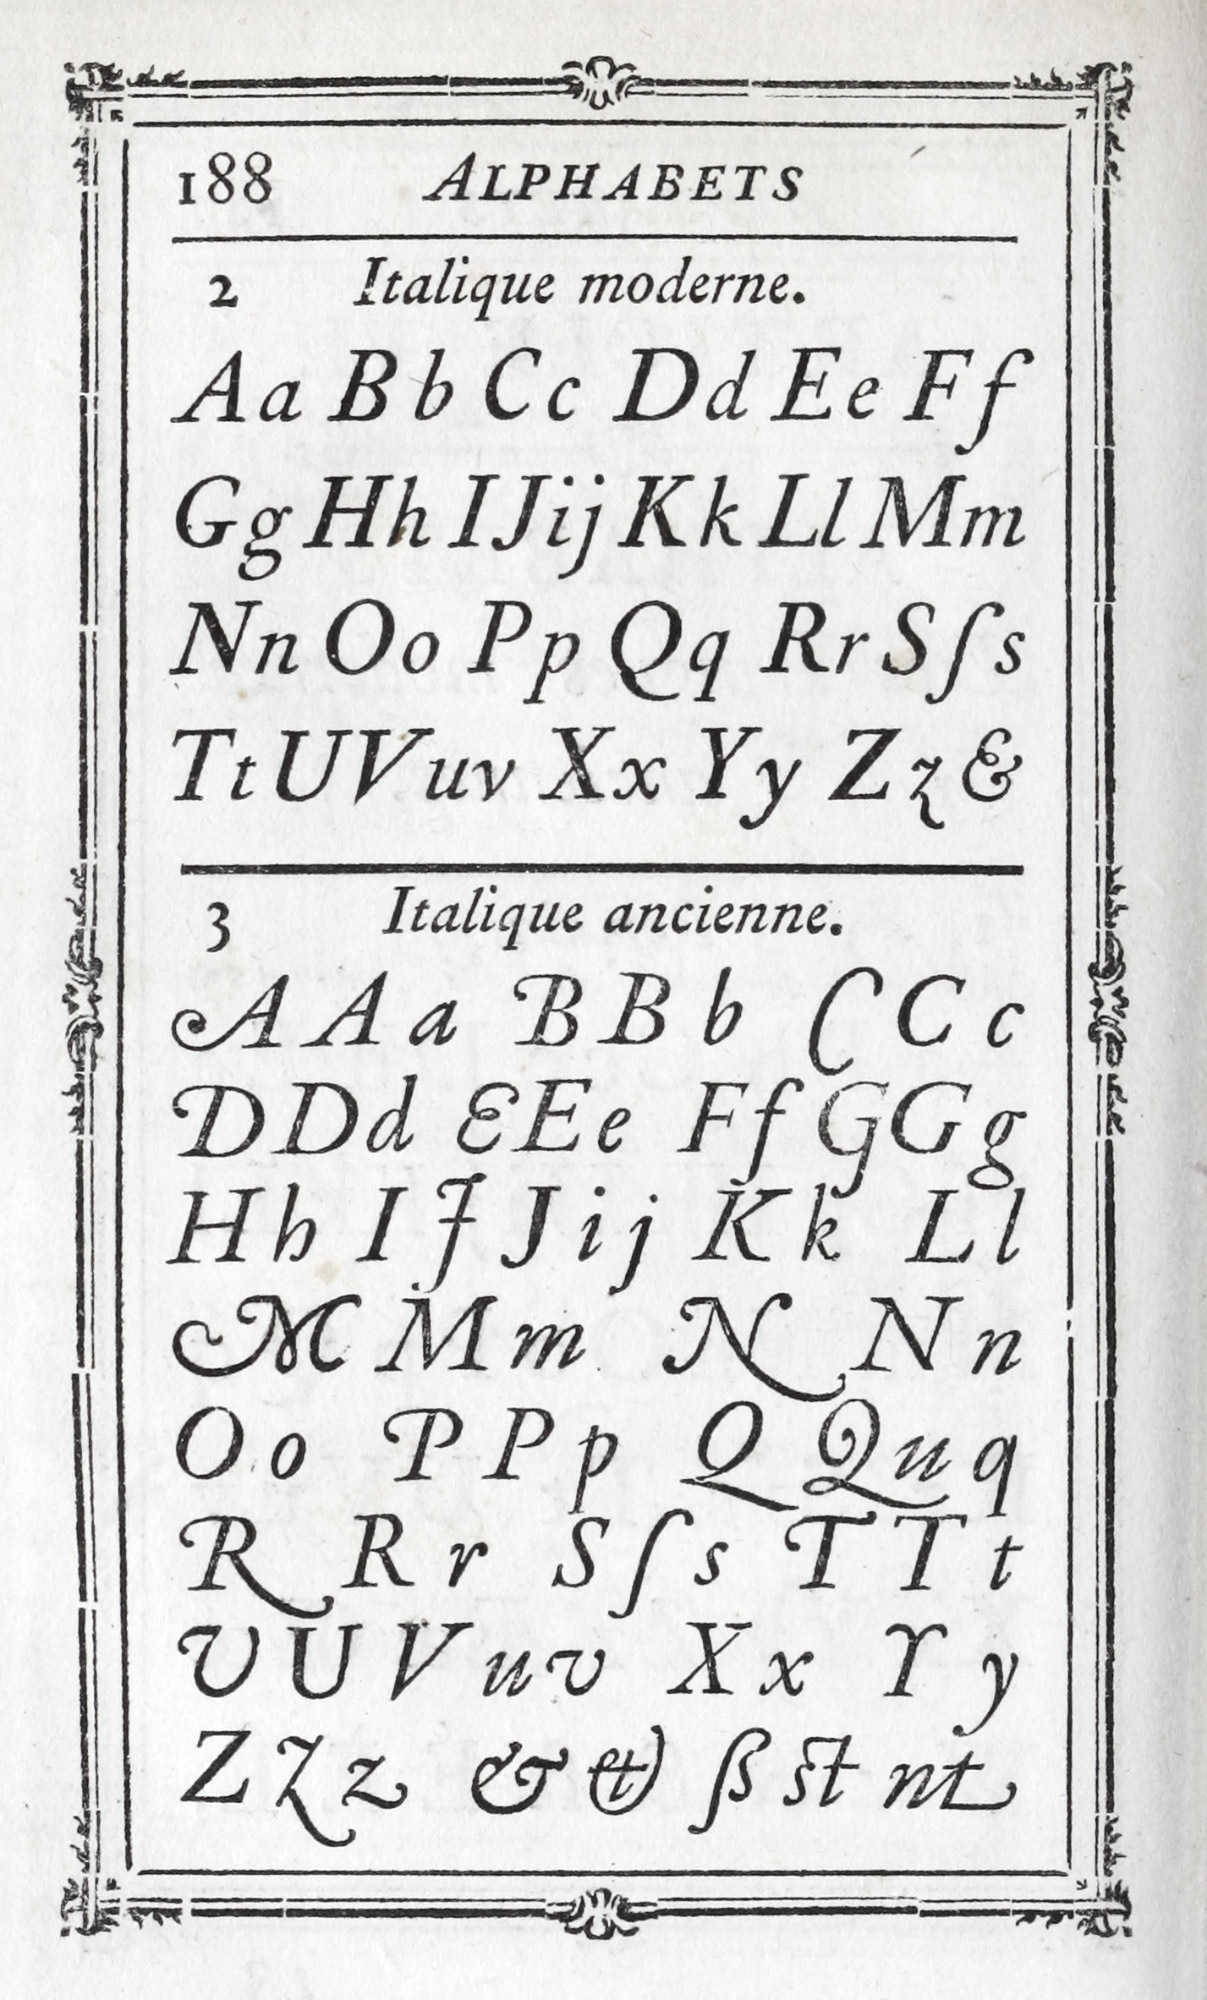 188 ALPHABETS
2 Italique moderne.
Aa Bb Cc Dd Ee Ff
Gg Hh IJij Kk Ll Mm
Nn Oo Pp Qq Rr Sſs
Tt UVuv Xx Yy Zz &
3 Italique ancienne.
A A a B B b C C c
D D d E E e F f G G g
H h I J J i j K k L l
M M m N N n
O o P P p Q Qu q
R R r S ſ s T T t
U U V u v X x Y y
Z Z z & & ß ſt nt